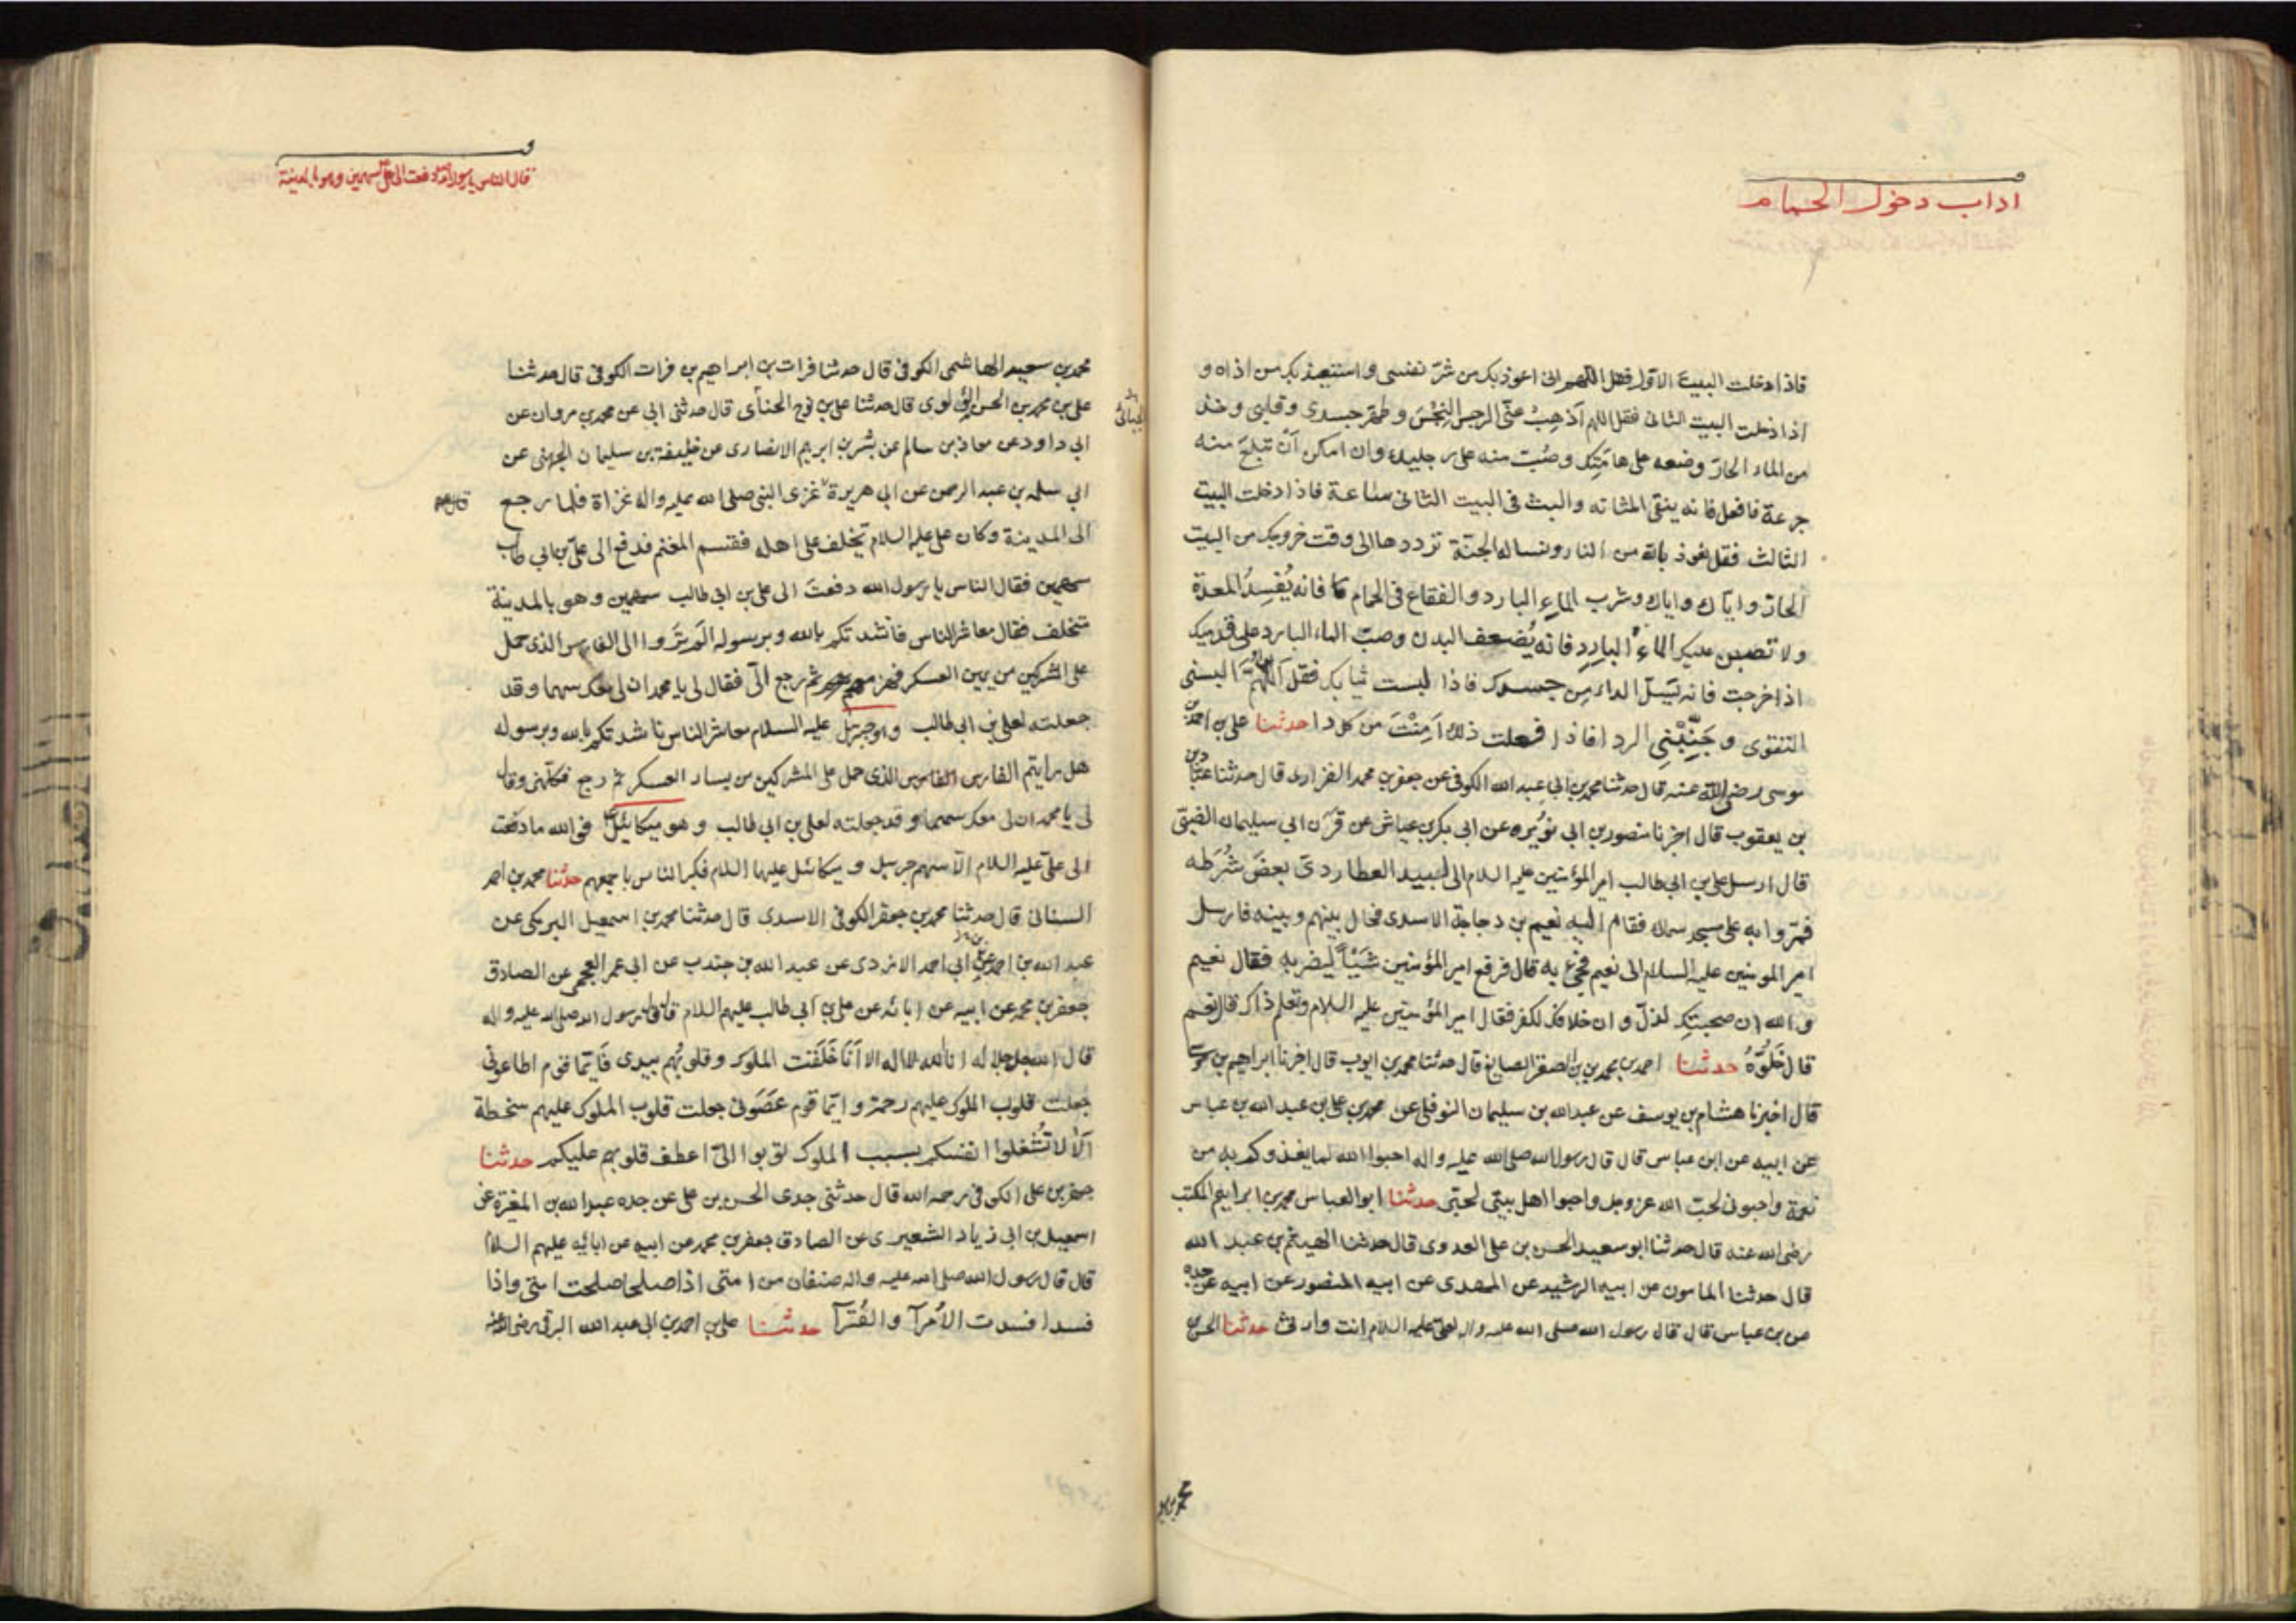 اداب دخول الحمام
فاذا دخلت البيت الاول فقل اللهم انى اعوذ بك من شرّ نفسى واستعيذ بك من اذاه و
اذا دخلت البيت الثانى فقل اللهم اَذْهِبْ عنّى الرجس النِجْسَ وطهّر جسدى وقلبى وخذ
من الماء الحارّ وضعه على هامَتِك وصُبّ منه على رجليك وان امكن اَنْ تبلعَ منه
جرعة فافعل فانه ينقى المثانه والبث فى البيت الثانى ساعة فاذا دخلت البيت
الثالث فقل نعوذ بالله من النار ونساله الجنّة تردّدها الى وقت خروجك من البيت
الحارّ وايّاك وشرب الماءِ البارد والفقاع فى الحمام فانه يُفْسِدُ المعدة
ولا تصبن عليك الماءَ البارِدِ فانه يُضعف البدن وصبّ الماء البارد على قدميك
اذا خرجت فانه يَسلّ الداء مِن جسدك فاذا لبست ثيابك فقل اَللّهُمَّ البسنى
التقوى وجَنِّبْنِى الردا فاذا فعلت ذلك اَمِنْتَ من كل دا حدثنا على بن احمد بن
موسى رضى الله عنه قال حدثنا محمد بن ابى عبد الله الكوفى عن جعفر بن محمد الفزارى قال حدثنا عبّاد
بن يعقوب قال اخبرنا منصور بن ابى نُوَيْره عن ابى بكر بن عياش عن قَرْن ابى سليمان الضبّى
قال ارسل على بن ابى طالب امير المؤمنين عليه السلام الى لبيد العطاردىّ بعضَ شُرَطه
فمرّوا به على مسجد سماك فقام اليه نعيم بن دجاجة الاسدى فحال بينهم وبينه فارسل
امير المومنين عليه السلام الى نعيم فجىءَ به قال فرفع امير المؤمنين شَيْئاً ليضربه فقال نعيم
والله ان صحبتك لذلّ وان خلافك لكفر فقال امير المؤمنين عليه السلام وتعلم ذاك قال نعم
قال خَلّوْهُ حدثنا احمد بن محمد بن الصقر الصايغ قال حدثنا محمد بن ايوب قال اخبرنا ابراهيم بن موسى
قال اخبرنا هشام بن يوسف عن عبد الله بن سليمان النوفلى عن محمد بن على بن عبد الله بن عباس
عن ابيه عن ابن عباس قال قال رسول الله صلى الله عليه واله احبوا الله لما يغذوكم به من
نعمة واحبونى لحبّ الله عز وجل واحبوا اهل بيتى لحبّى حدثنا ابو العباس محمد بن ابراهيم المكتب
رضى الله عنه قال حدثنا ابو سعيد الحسن بن على العدوى قال حدثنا الهيثم بن عبد الله
قال حدثنا المامون عن ابيه الرشيد عن المهدى عن ابيه المنصور عن ابيه عن جده
عن بن عباس قال قال رسول الله صلى الله عليه واله لعلىّ عليه السلام انت وارثى حدثنا الحسن بن
محمد بن سعيد
قال الناس يا رسول الله دفعت الى على سهمين وهو بالمدينة
محمد بن سعيد الهاشمى الكوفى قال حدثنا فرات بن ابراهيم بن فرات الكوفى قال حدثنا
على بن محمد بن الحسن اللؤلؤى قال حدثنا على بن نوح الحنأى قال حدثنى ابى عن محمد بن مروان عن
ابى داود عن معاذ بن سالم عن بشر بن ابرهيم الانصارى عن خليفة بن سليمان الجهنى عن
ابى سلمه بن عبد الرحمن عن ابى هريرة غزى النبى صلى الله عليه واله غزاة فلما رجع
الى المدينة وكان على عليه السلام تخلف على اهله فقسم المغنم فدفع الى علىّ بن ابى طالب
سهمين فقال الناس يا رسول الله دفعتَ الى على بن ابى طالب سهمين وهو بالمدينة
متخلف فقال معاشر الناس ناشدتكم بالله وبرسوله الَم تَرَوا الى الفارس الذى حمل
على المشركين من يمين العسكر فهزمهم ثم رجع الىّ فقال لى يا محمد ان لى معك سهما وقد
جعلته لعلى بن ابى طالب وهو جبرئيل عليه السلام معاشر الناس ناشدتكم بالله وبرسوله
هل رايتم الفارس الذى حمل على المشركين من يسار العسكر ثم رجع فكلّمنى وقال
لى يا محمد ان لى معك سهما وقد جعلته لعلى بن ابى طالب وهو ميكائيل فوالله ما دفعت
الى علىّ عليه السلام الّا سهم جبرئيل وميكائيل عليهما السلام فكبر الناس باجمعهم حدثنا محمد بن احمد
السنانى قال حدثنا محمد بن جعفر الكوفى الاسدى قال حدثنا محمد بن اسمعيل البرمكى عن
عبد الله بن احمد عن ابى احمد الازدى عن عبد الله بن جندب عن ابى عمر العجمى عن الصادق
جعفر بن محمد عن ابيه عن ابائه عن على بن ابى طالب عليهم السلام قال قال رسول الله صلى الله عليه واله
قال الله جل جلاله انا الله لا اله الا اَنَا خَلَقْت الملوك وقلوبُهم بيدى فايّما قوم اطاعونى
جعلت قلوب الملوك عليهم رحمة وايّما قوم عَصَوْنى جعلت قلوب الملوك عليهم سخطة
اَلا لا تُشْغلوا انفسكم بسبب الملوك توبوا الىّ اعطف قلوبهم عليكم حدثنا
جعفر بن على الكوفى رحمه الله قال حدثنى جدى الحسن بن على عن جده عبد الله بن المغيرة عن
اسمعيل بن ابى زياد الشعيرى عن الصادق جعفر بن محمد عن ابيه عن ابائه عليهم السلام
قال قال رسول الله صلى الله عليه واله صنفان من امتى اذا صلحا صلحت امتى واذا
فسدا فسدت الاُمرآ والقُرّآ حدثنا على بن احمد بن ابى عبد الله البرقى رضى الله عنه